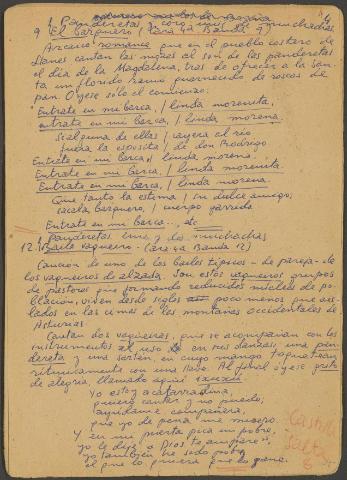 4
1 Panderetas y coro mixto de muchachas
9. El Barquero / (Cara 4ª Banda 9)
Arcaico romance que en el pueblo costero de
Llanes cantan las mozas al son de las panderetas
el día de la Magdalena, tras de ofrecer a la San-
ta un florido ramo guarnecido de roscos de
pan. Oyese sólo el comienzo:
Entrate en mi barca, / linda morenita,
entrate en mi barca, / linda morena.
Si alguna de ellas / cayera al río
fuera la esposita / de don Rodrigo
Entrate en mi barca, / linda morena,
Entrate en mi barca, / linda morenita.
Entrate en mi barca, / linda morena
Que tanto la estima / su dulce amigo;
sácala, barquero, /
Entrate en mi barca... etc
1 panderetas una y dos muchachas
12. Baile vaqueiro - Cara 4ª Banda 12)
Canción de uno de los bailes típicos - de pareja - de
los vaqueiros de alzada. Son estos vaqueiros grupos
de pastores que formando reducidos núcleos de po-
blación, viven desde siglos poco menos que ais-
lados en las cimas de las montañas occidentales de
Asturias.
Cantan dos vaqueiras, que se acompañan con los
instrumentos al uso en sus danzas: una pan-
dereta y una sartén, en cuyo mango
ritmicamente con una llave. Al final óyese grito
de alegría, llamado aquí ixuxú
Yo estoy acatarradina,
quiero cantar y no puedo,
ayúdame compañera,
que yo de pena me muero.
Y en mi puerta pica un pobre,
yo le dije "Dios te ampare",
yo también he sido pobre
el que lo quiera que lo gane.
Castilla
Falta
6